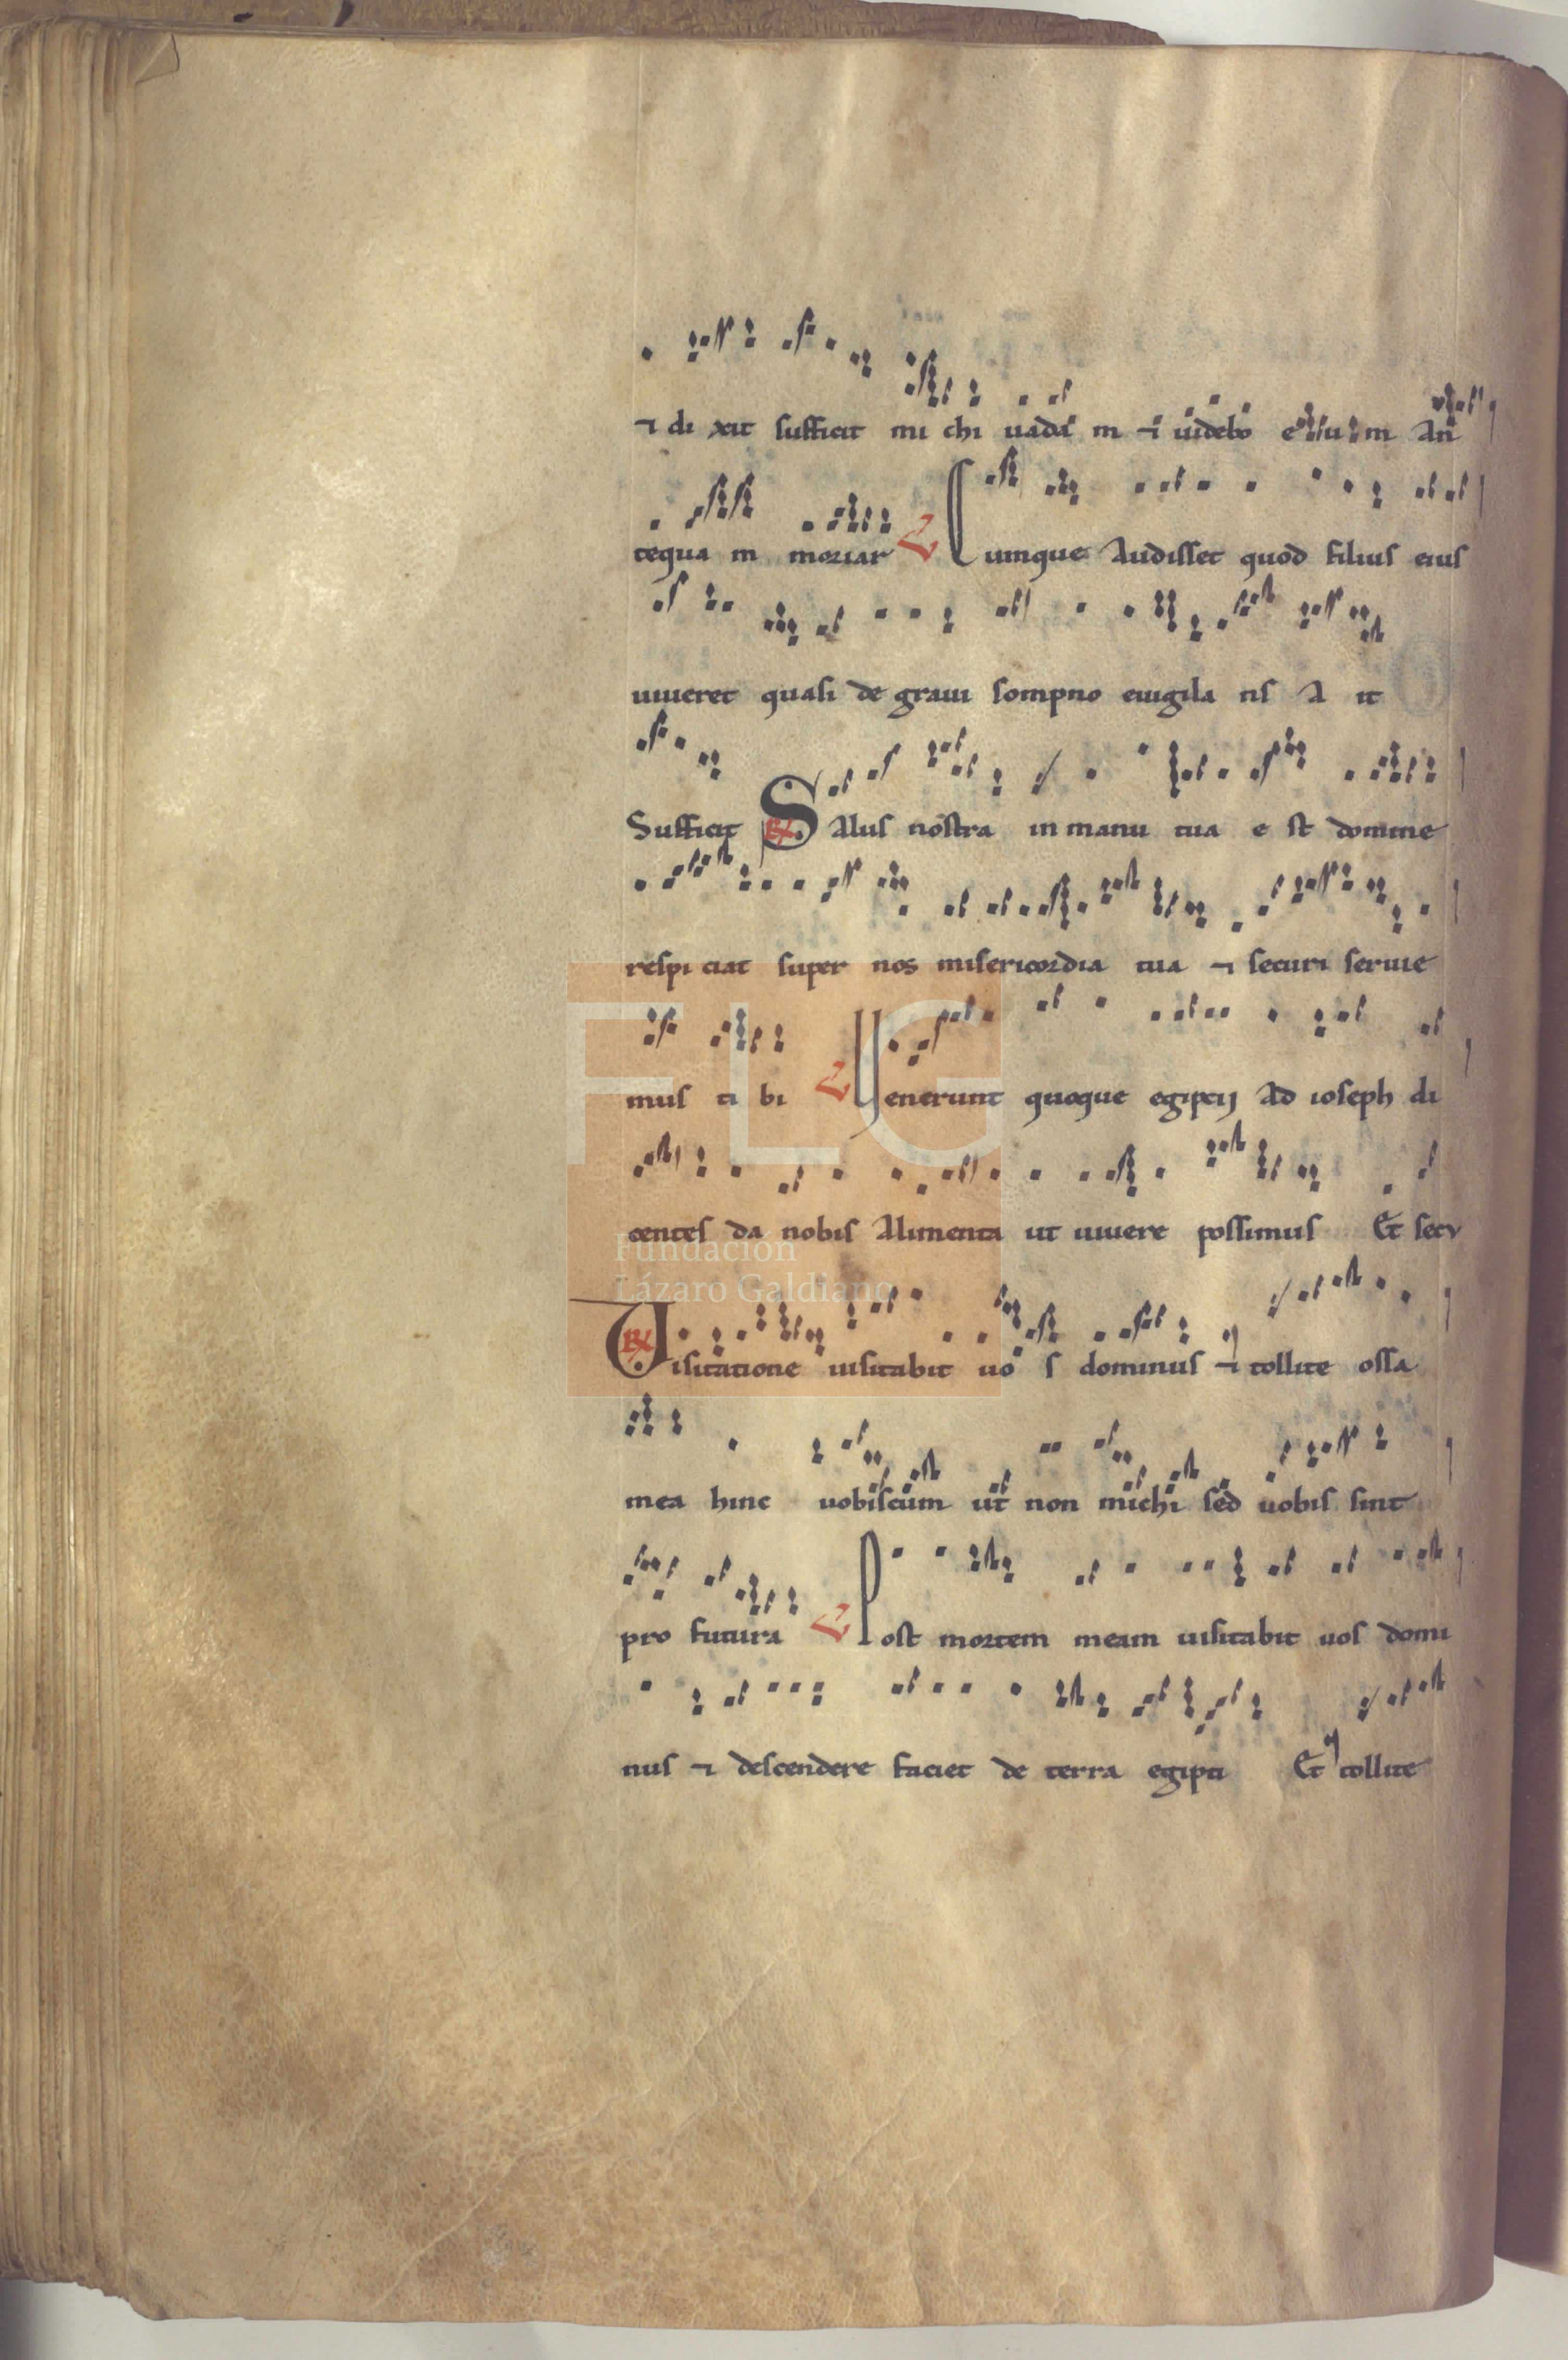 ⁊ di xit sufficit mi chi uada m ⁊ uidebo e u m An
tequa m moriar V Cumque Audisset quod filius eius
uiueret quasi de graui sompno euigila ns A it
Sufficit R Salus nostra in manu tua e st domine
respi ciat super nos misericordia tua ⁊ securi seruie
mus ti bi V Venerunt quoque egiptij Ad ioseph di
centes da nobis Alimenta ut uiuere possimus Et secu
R Visitatione uisitabit uo s dominus ⁊ tollite ossa
mea hinc uobiscum ut non michi sed uobis sint
pro futura V Post mortem meam uisitabit uos domi
nus ⁊ descendere faciet de terra egipti Et tollite
FLG
Fundación
Lázaro Galdiano